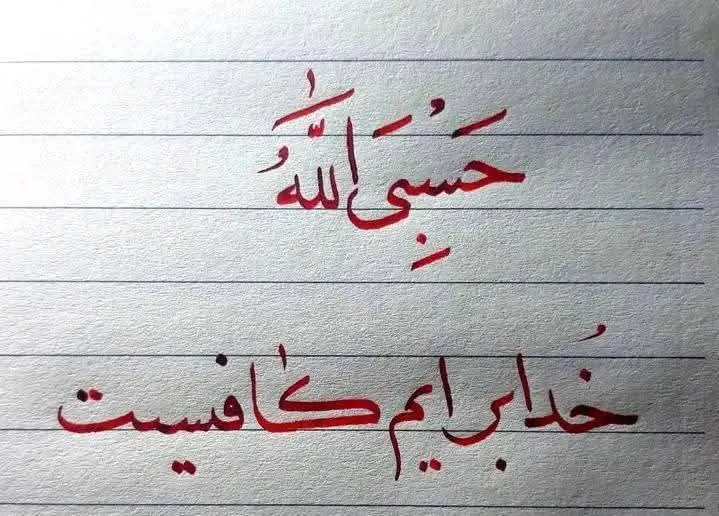 حَسْبِیَ اللّٰهُ
خُدا برایم کافیست